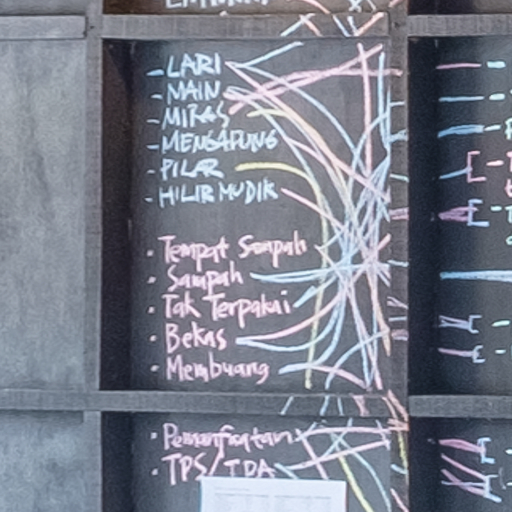 - LARI
- MAIN
- MIRAS
- MENGAPUNG
- PILAR
- HILIR MUDIK
· Tempat Sampah
· Sampah
· Tak Terpakai
· Bekas
· Membuang
· Pemanfaatan
· TPS/TDA